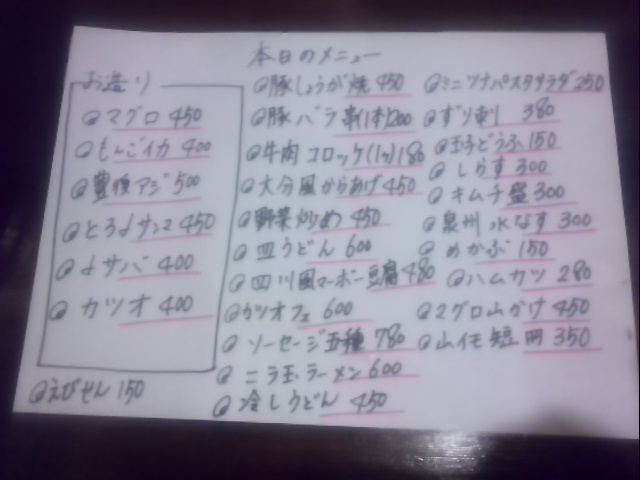 本日のメニュー
お造り
マグロ 450
もんごイカ 400
豊後アジ 500
とろ〆サンマ 450
〆サバ 400
カツオ 400
えびせん 150
豚しょうが焼 450
豚バラ串(1本)200
牛肉コロッケ(1ヶ)180
大分風からあげ 450
野菜炒め 450
皿うどん 600
四川風マーボー豆腐 480
カツオフェ 600
ソーセージ五種 780
ニラ玉ラーメン 600
冷しうどん 450
ミニツナパスタサラダ 250
ずり刺 380
玉子どうふ 150
しらす 300
キムチ盛 300
泉州水なす 300
めかぶ 150
ハムカツ 280
マグロ山かけ 450
山イモ短冊 350